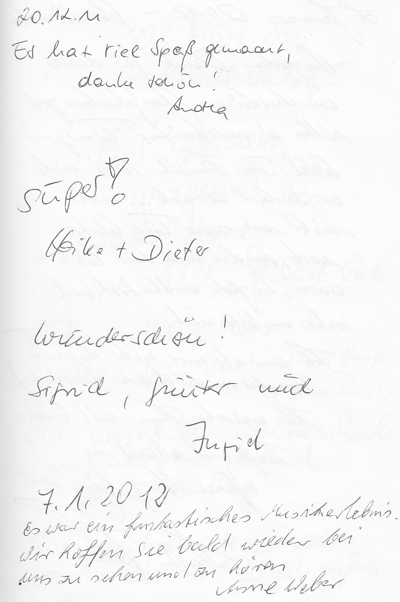 20.12.11
Es hat viel Spaß gemacht,
danke schön!
Andrea
super!
Heike + Dieter
Wunderschön!
Sigrid, Günter und
Ingrid
7.1.2012
Es war ein fantastisches Musikerlebnis.
Wir hoffen Sie bald wieder bei
uns zu sehen und zu hören
Anne Weber